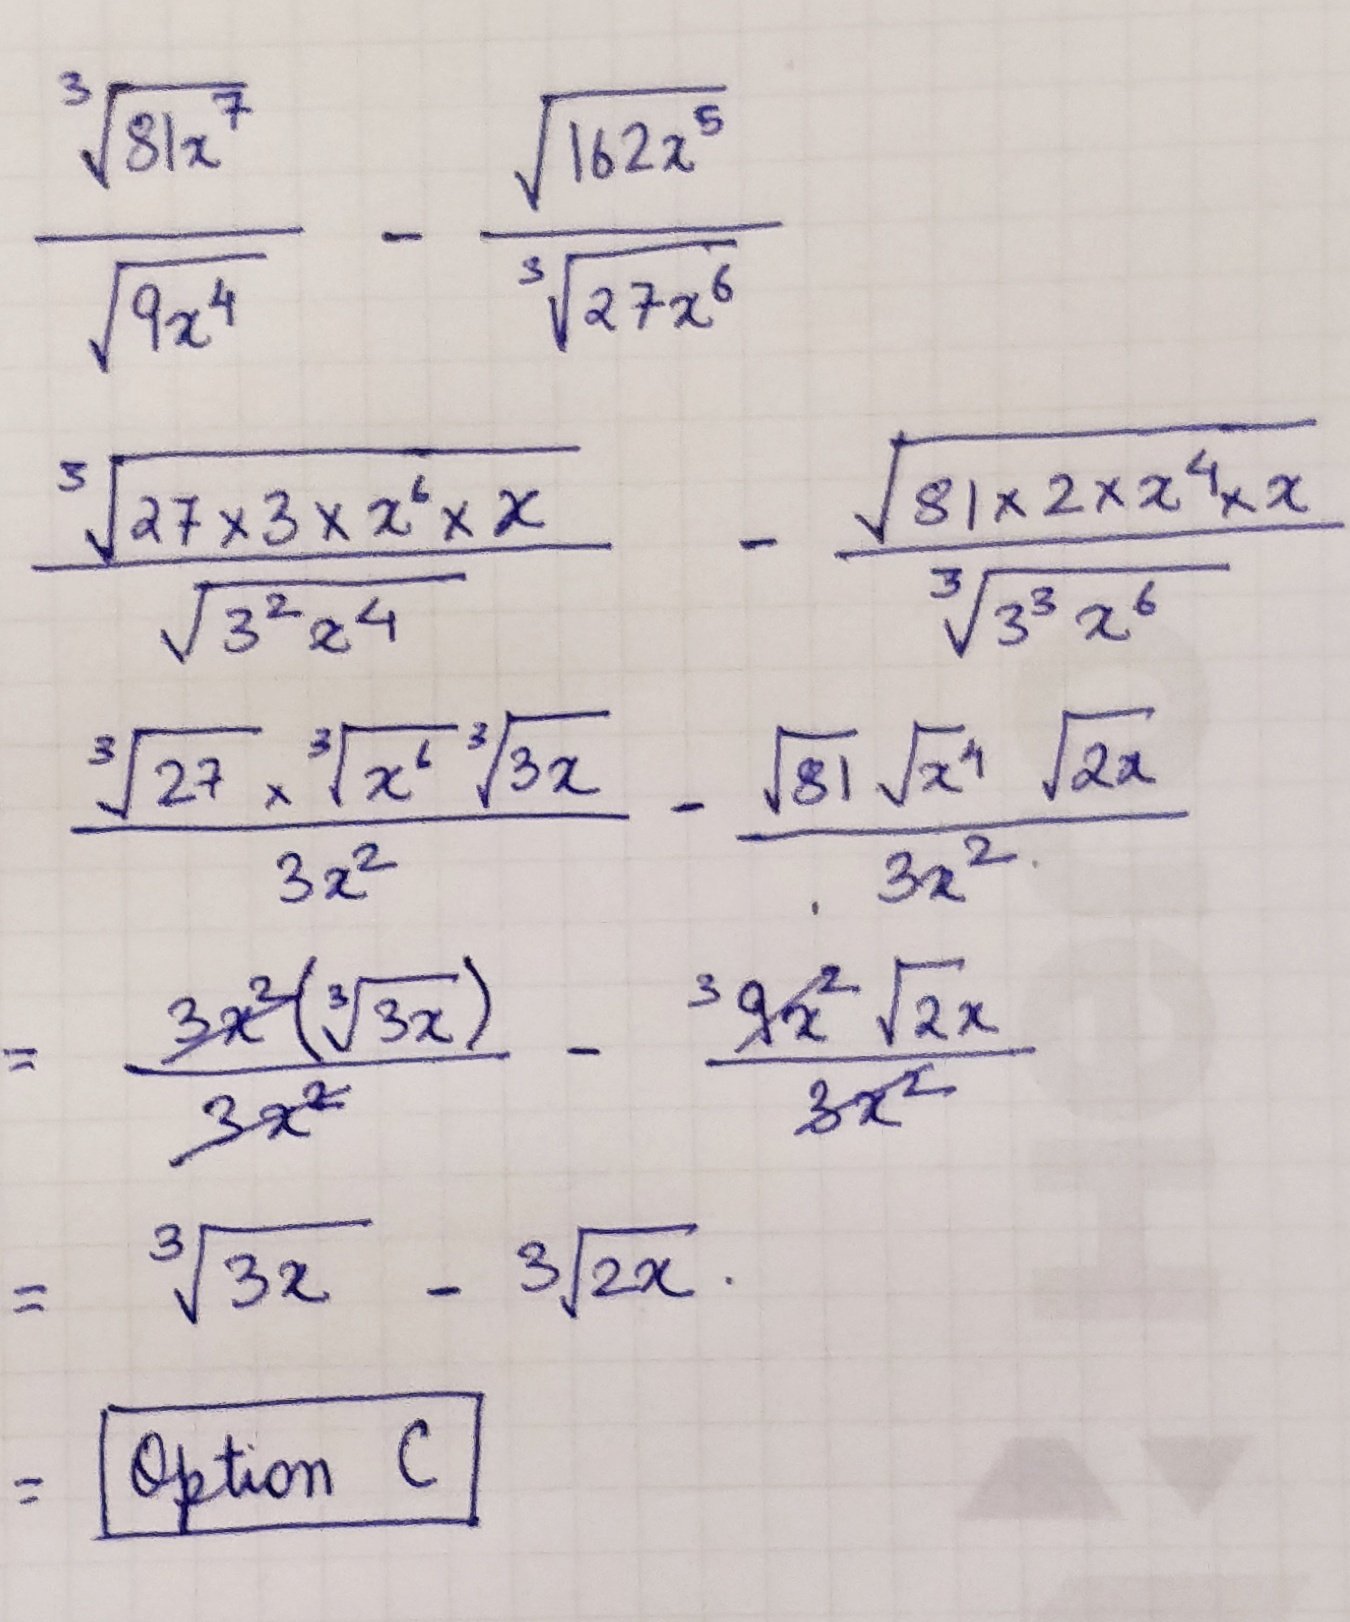 ∛81x⁷ / √9x⁴ - √162x⁵ / ∛27x⁶
∛27×3×x⁶×x / √3²x⁴ - √81×2×x⁴×x / ∛3³x⁶
∛27 × ∛x⁶ ∛3x / 3x² - √81 √x⁴ √2x / 3x²
= 3x²(∛3x) / 3x² - ³ 9x² √2x / 3x²
= ∛3x - 3√2x .
= Option C